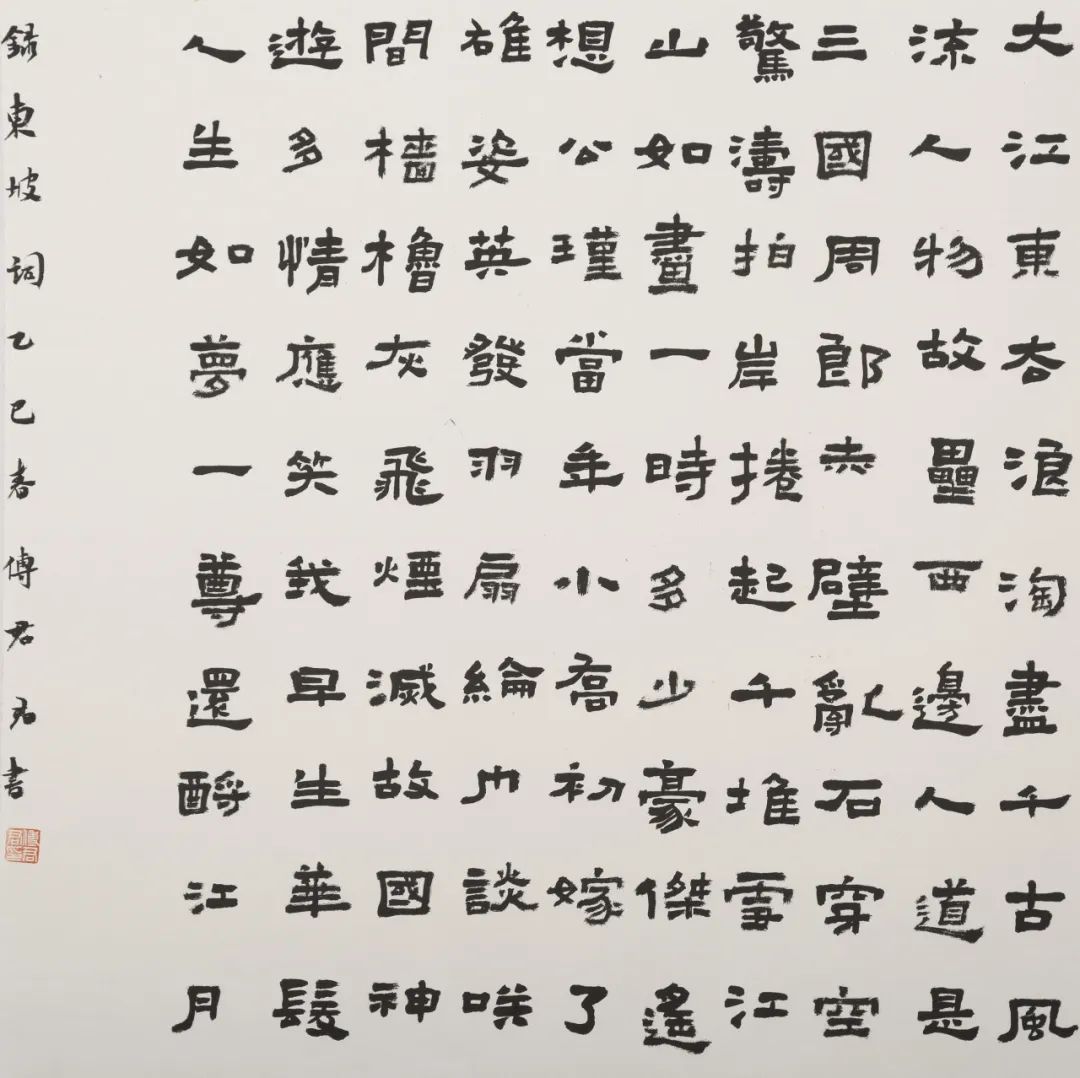 大江東去浪淘盡千古風
流人物故壘西邊人道是
三國周郎赤壁亂石穿空
驚濤拍岸捲起千堆雪江
山如畫一時多少豪傑遙
想公瑾當年小喬初嫁了
雄姿英發羽扇綸巾談咲
間檣櫓灰飛煙滅故國神
遊多情應笑我早生華髮
人生如夢一尊還酹江月
錄東坡詞乙巳春傅君君書